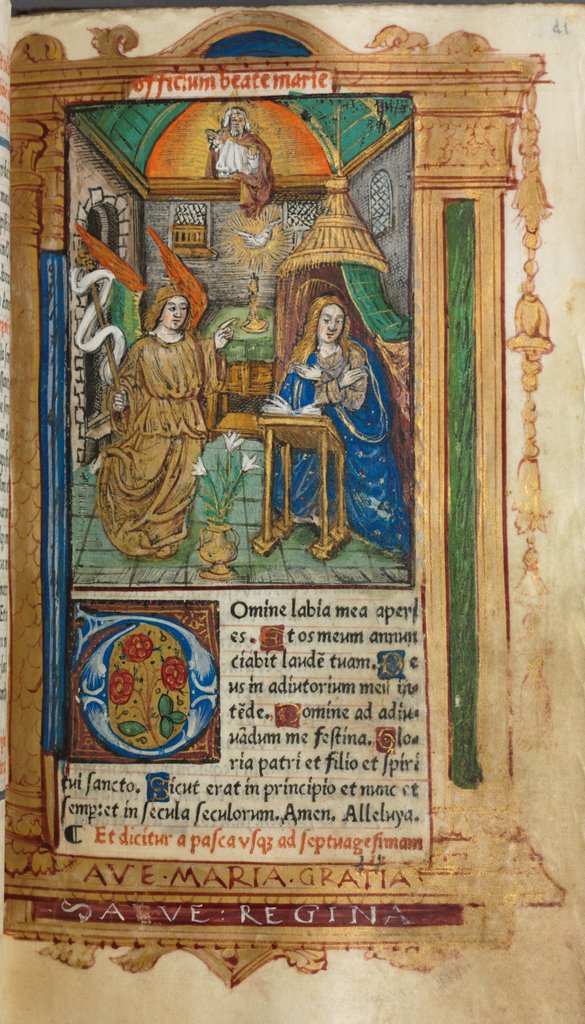 d1
officium beate marie
Omine labia mea aperi
es. Et os meum annun
ciabit laudē tuam. De
us in adiutorium meū in
tēde. Domine ad adiu
uādum me festina. Glo
ria patri et filio et spiri
tui sancto. Sicut erat in principio et nunc et
semp: et in secula seculorum. Amen. Alleluya.
Et dicitur a pasca vsqꝫ ad septuagesimam
AVE·MARIA·GRATIA
SALVE:REGINA